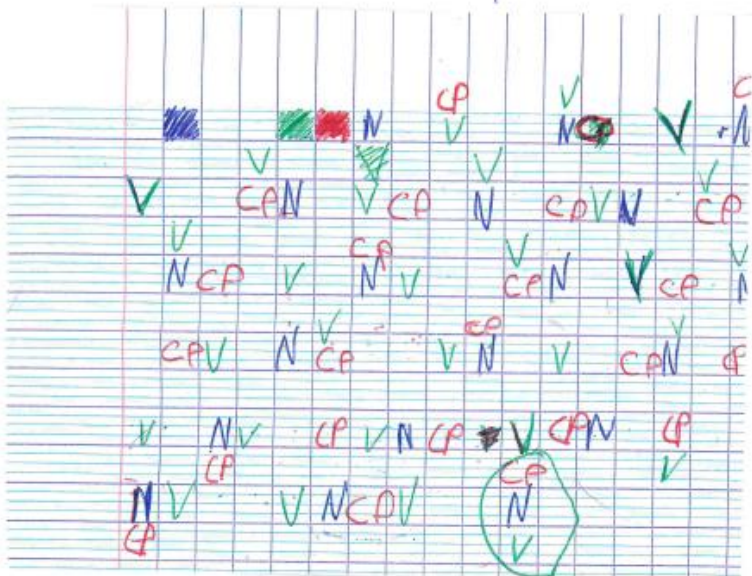 CP V C
N V N CP V N
V V V
V CP N V CP N CP V N CP
V CP V V
N CP V N V CP N V CP N
V CP V
CP V N CP V N V CP N CP
V N V CP V N CP V CP N CP
CP V
N V V N CP V CP N
CP V